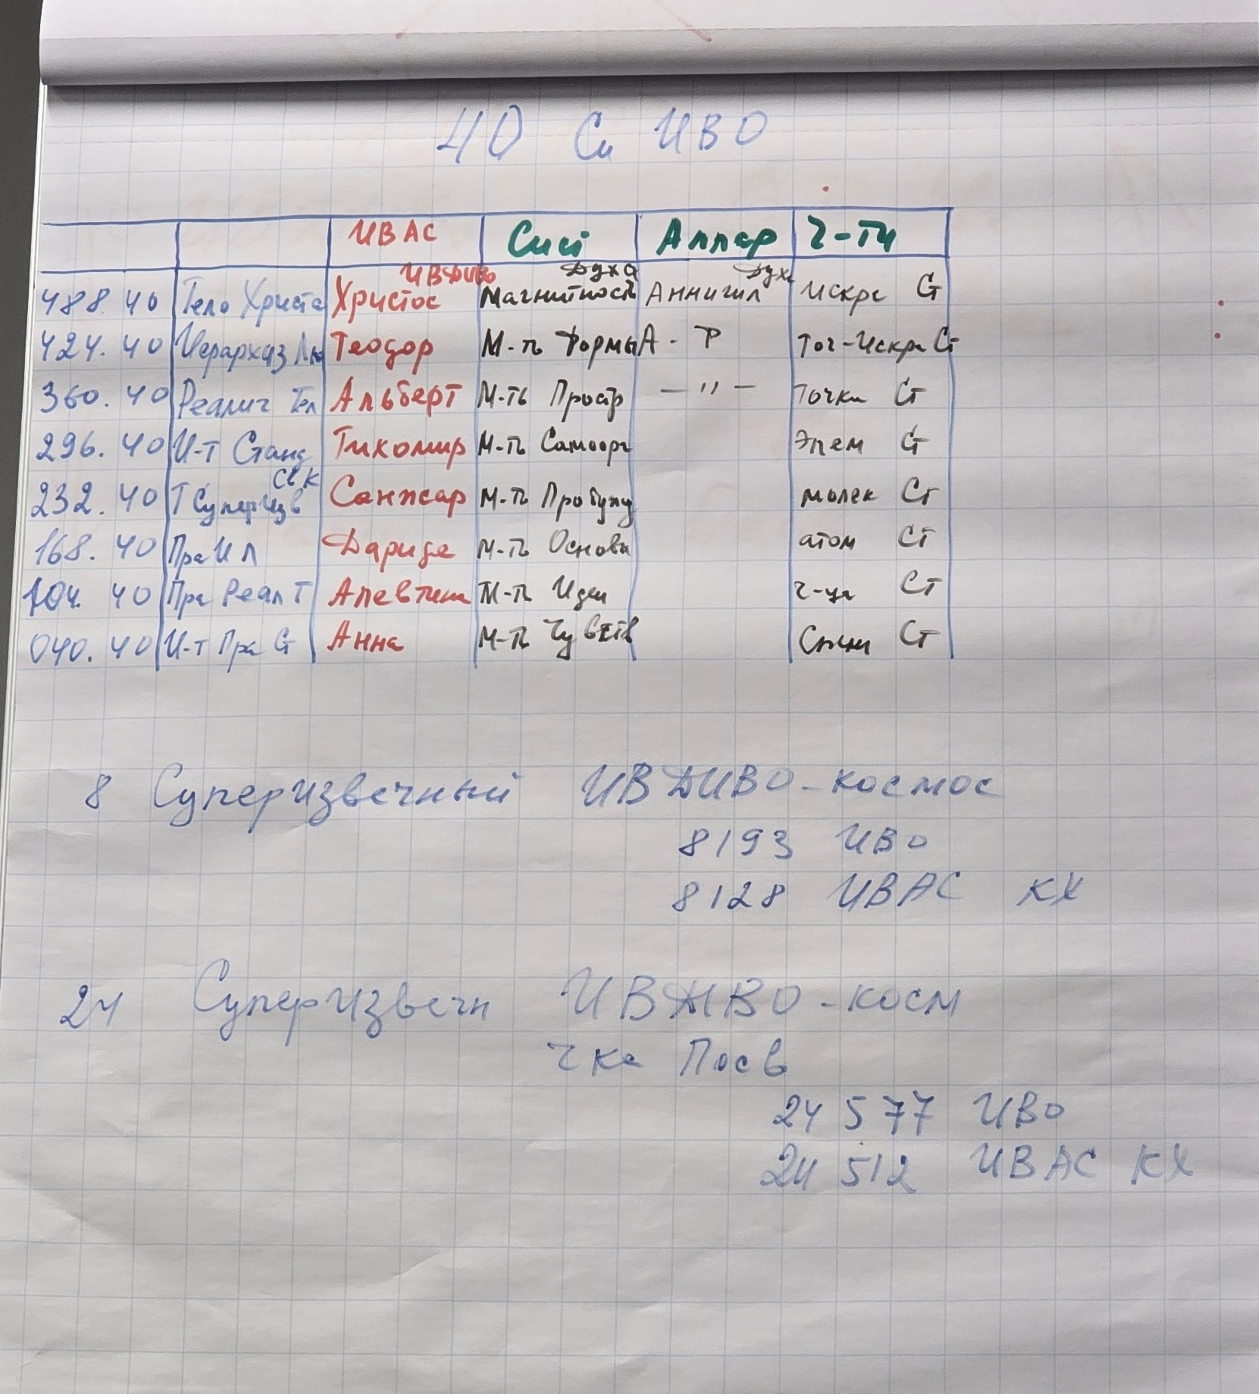 40 Си ИВО
ИВАС Сист Аппар Ч-ти
488.40 Тело Христа Христос ИВДИВО Магнитность Духа Аннигил Духа искра Ст
424.40 Иерархиз Теодор М-ть Формы А-Р Точ-Искра Ст
360.40 Реалиг Тел Альберт М-ть Простр — " — Точки Ст
296.40 И-т Станд Тихомир М-ть Самоорг Элем Ст
232.40 Т Суперизв СвК Санжар М-ть Пробужд молек Ст
168.40 Дариде М-ть Основы атом Ст
104.40 Пра Реал Т Алевтина М-ть Идеи ч-цы Ст
040.40 И-т Пра Ст Анна М-ть Чувств Спин Ст
8 Суперизвечный ИВДИВО-космос
8193 ИВО
8128 ИВАС КХ
24 Суперизвечн ИВДИВО-косм
Чка Посв
24 577 ИВО
24 512 ИВАС КХ